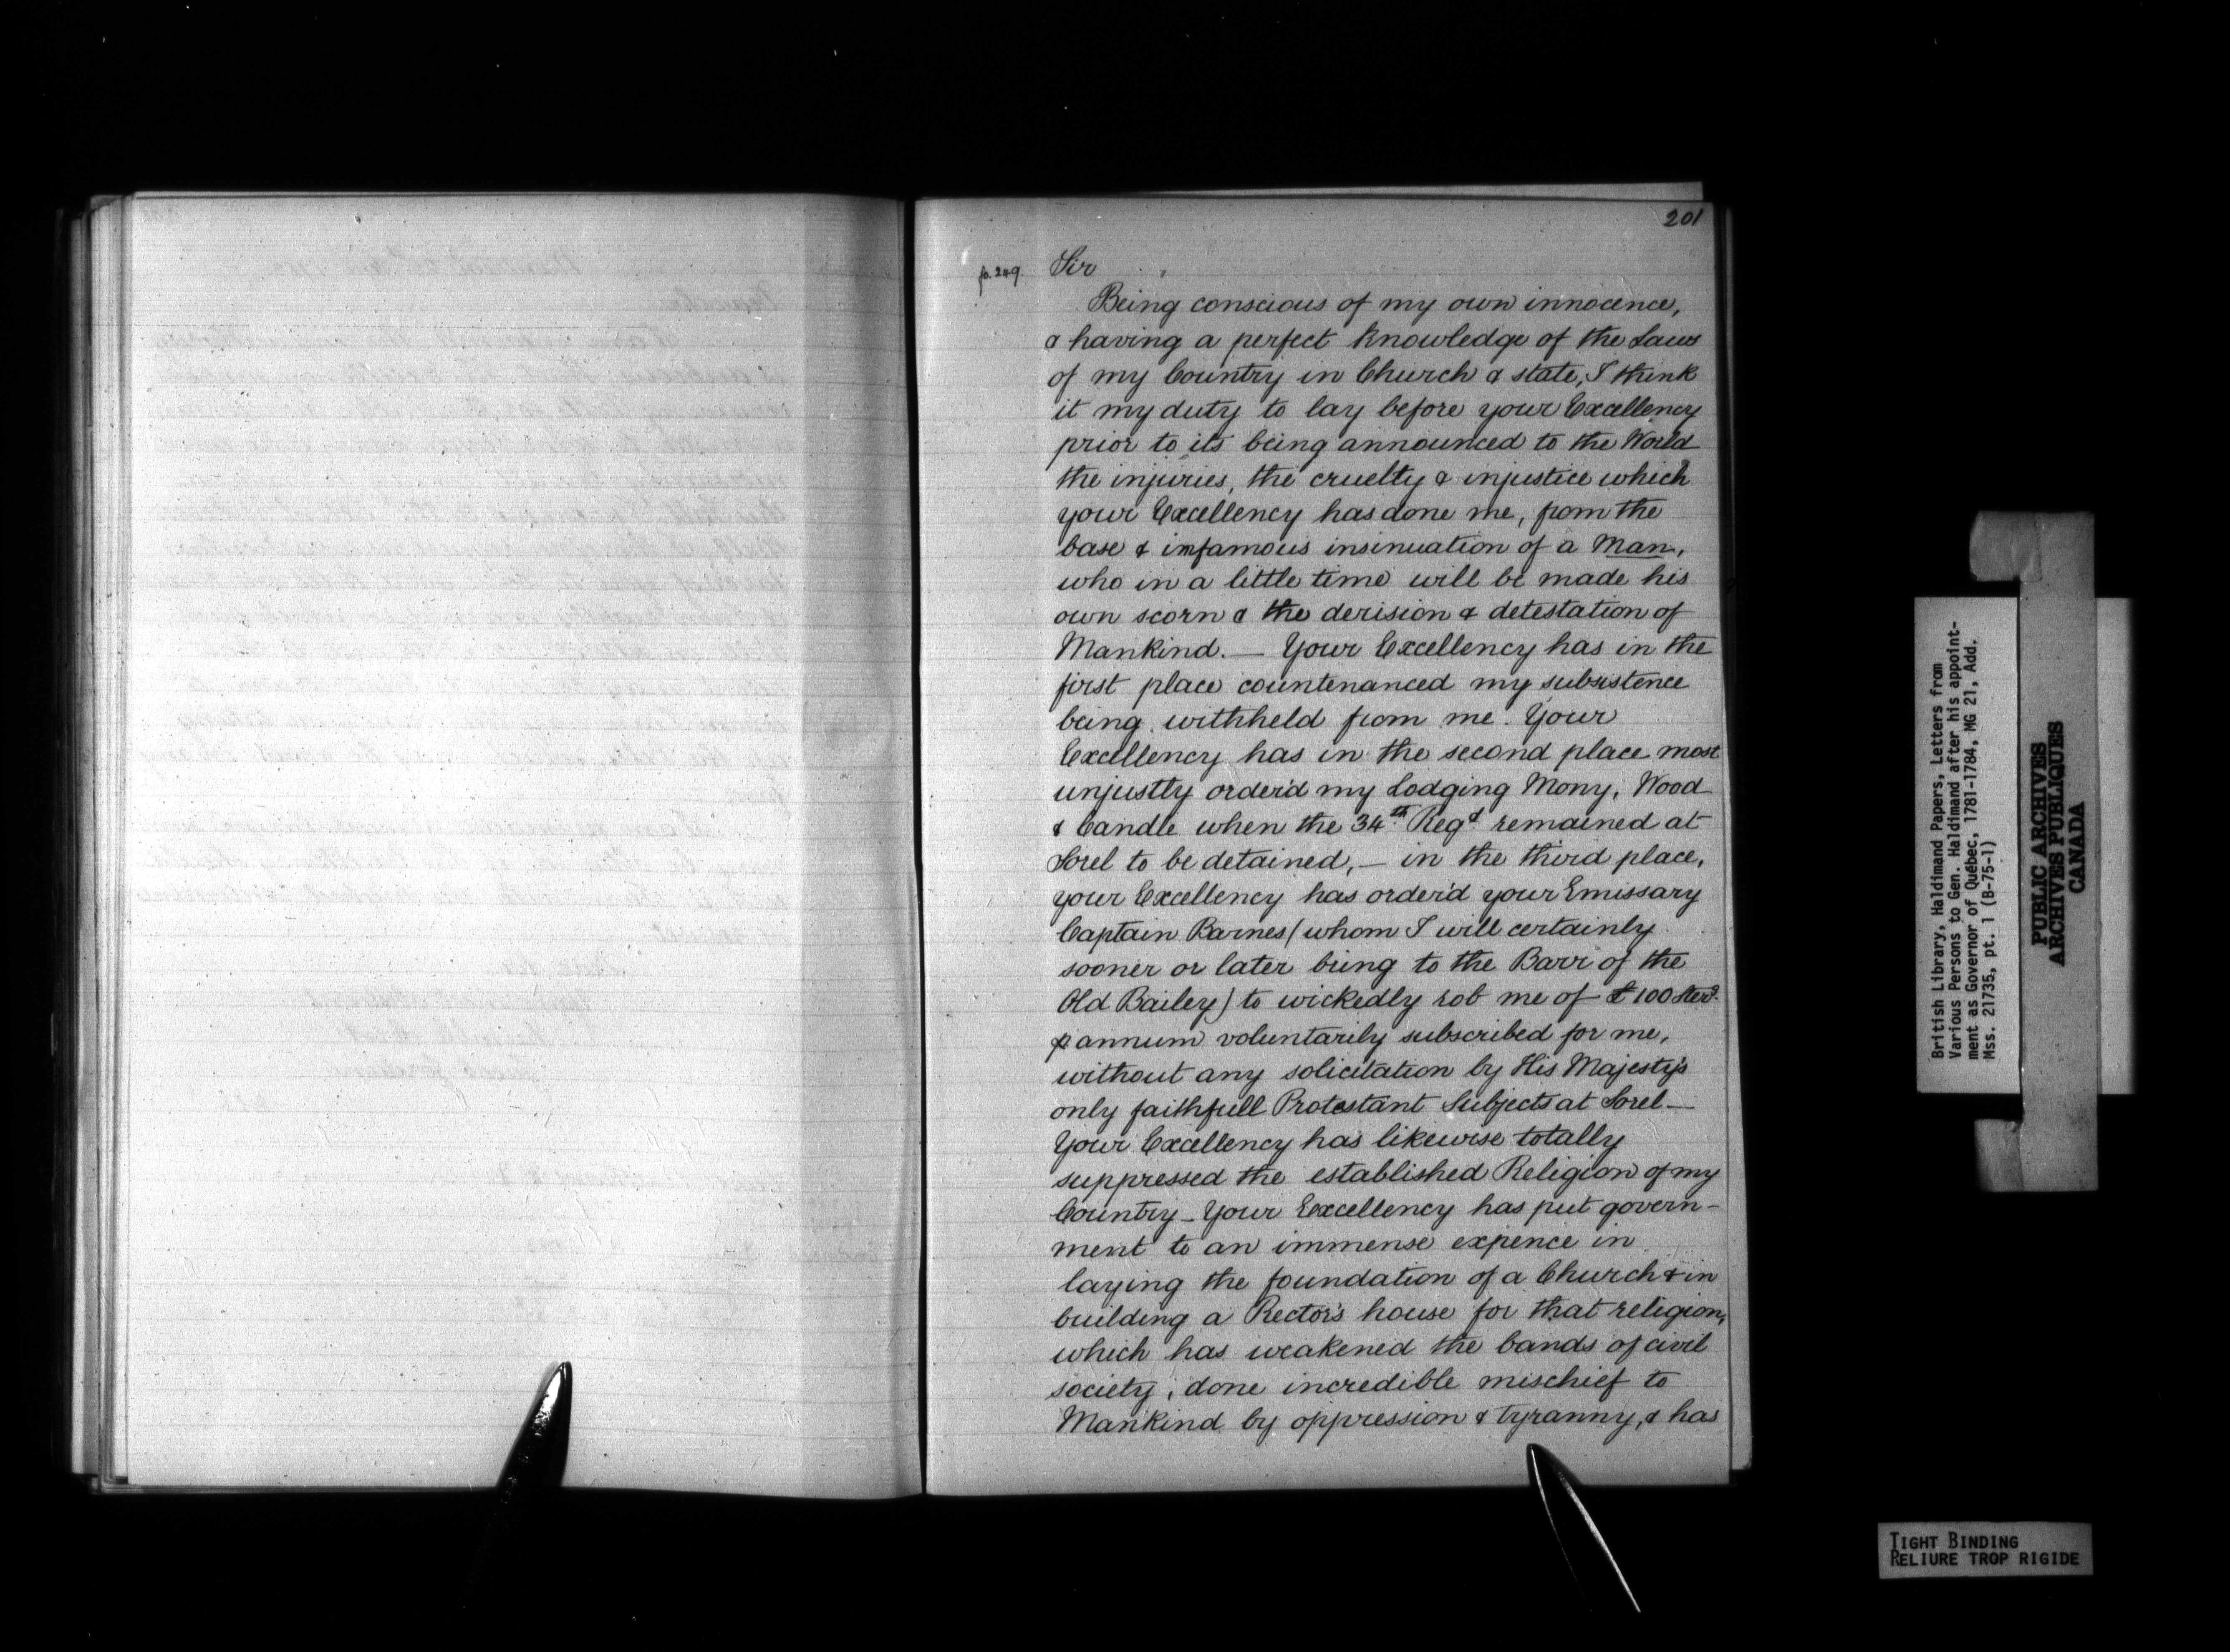 201
fo. 249.
Sir
Being conscious of my own innocence,
& having a perfect knowledge of the Laws
of my Country in Church & state, I think
it my duty to lay before your Excellency
prior to its being announced to the World
the injuries, the cruelty & injustice which
your Excellency has done me, from the
base & infamous insinuation of a Man,
who in a little time will be made his
own scorn & the derision & detestation of
Mankind. — Your Excellency has in the
first place countenanced my subsistence
being withheld from me. Your
Excellency has in the second place most
unjustly order'd my Lodging Mony, Wood
& Candle when the 34th Regt. remained at
Sorel to be detained, — in the third place,
your Excellency has order'd your Emissary
Captain Barnes (whom I will certainly
sooner or later bring to the Barr of the
Old Bailey) to wickedly rob me of £100 Sterg.
p annum voluntarily subscribed for me,
without any solicitation by His Majesty's
only faithfull Protestant Subjects at Sorel —
Your Excellency has likewise totally
suppressed the established Religion of my
Country — Your Excellency has put govern-
ment to an immense expence in
laying the foundation of a Church & in
building a Rector's house for that religion,
which has weakened the bands of civil
society, done incredible mischief to
Mankind by oppression & tyranny, & has
British Library, Haldimand Papers, Letters from
Various Persons to Gen. Haldimand after his appoint-
ment as Governor of Québec, 1781-1784, MG 21, Add.
Mss. 21735, pt. 1 (B-75-1)
PUBLIC ARCHIVES
ARCHIVES PUBLIQUES
CANADA
TIGHT BINDING
RELIURE TROP RIGIDE